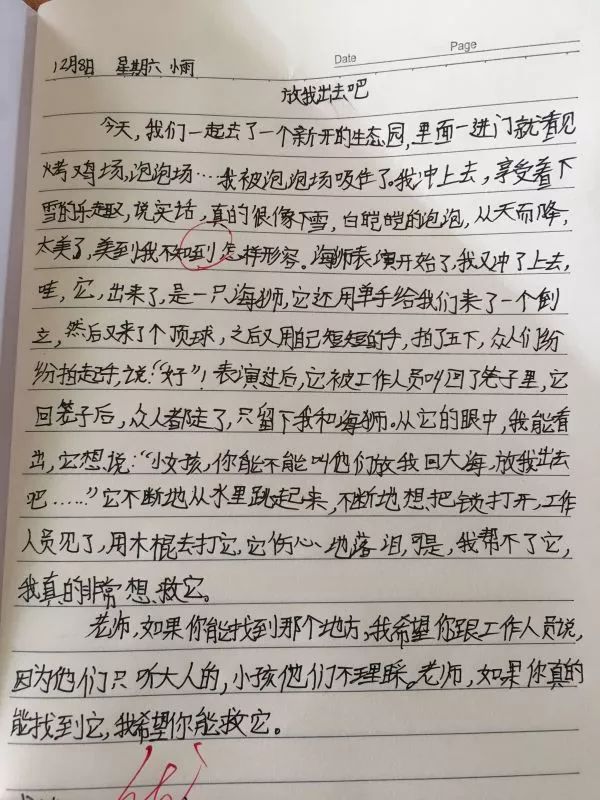 Date
Page
12月8日 星期六 小雨
放我出去吧
今天,我们一起去了一个新开的生态园,里面一进门就看见
烤鸡场,泡泡场……我被泡泡场吸住了。我冲上去,享受着下
雪的乐趣,说实话,真的很像下雪,白皑皑的泡泡,从天而降,
太美了,美到我不知到怎样形容。海狮表演开始了,我又冲了上去,
哇,它,出来了,是一只海狮,它还用单手给我们来了一个倒
立,然后又来了个顶球,之后又用自己短短的手,拍了五下,众人们纷
纷拍起手,说:“好”!表演过后,它被工作人员叫回了笼子里,它
回笼子后,众人都走了,只留下我和海狮。从它的眼中,我能看
出,它想说:“小女孩,你能不能叫他们放我回大海,放我出去
吧……”它不断地从水里跳起来,不断地想把锁打开,工作
人员见了,用木棍去打它,它伤心地落泪,可是,我帮不了它,
我真的非常想救它。
老师,如果你能找到那个地方,我希望你跟工作人员说,
因为他们只听大人的,小孩他们不理睬。老师,如果你真的
能找到它,我希望你能救它。